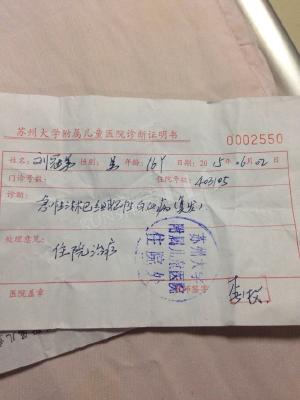 苏州大学附属儿童医院诊断证明书
0002550
姓名: 刘冠 性别: 男 年龄: 16Y 日期: 2015.6.02
门诊号数: 住院号数: 403105
诊断:
急性淋巴细胞性白血病(复发)
处理意见:
住院治疗
苏州大学
附属儿童医院
住院处
医院盖章 师签字